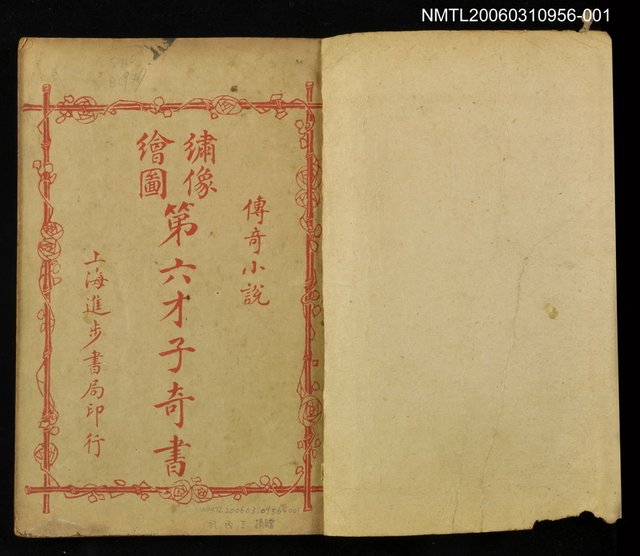 NMTL20060310956-001
傳奇小說
繡像
繪圖
第六才子奇書
上海進步書局印行
NMTL20060310956-001